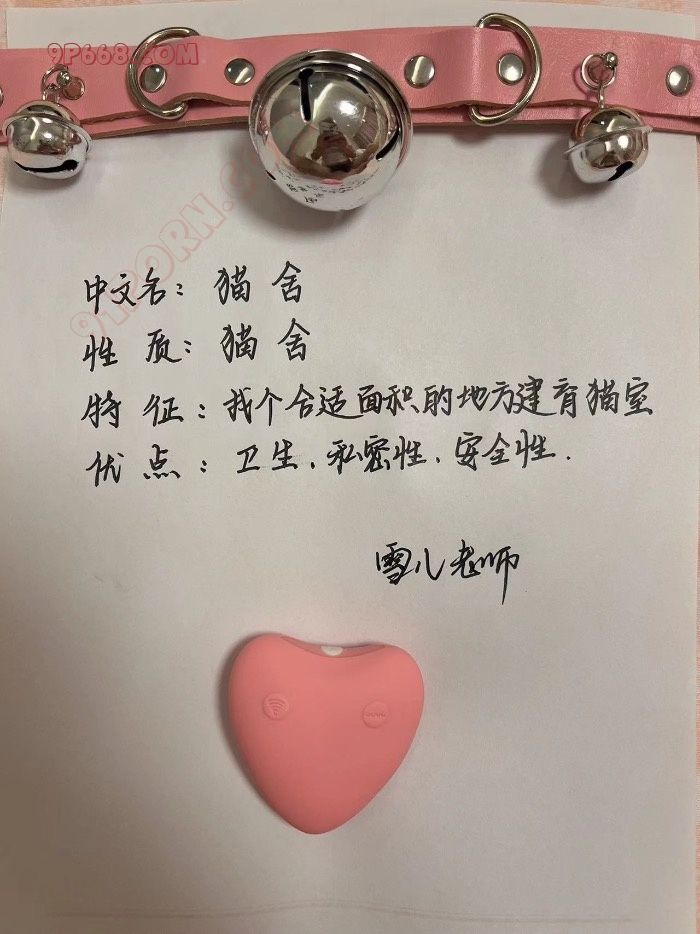 9P668.COM
91PORN.CO
中文名：猫舍
性质：猫舍
特征：找个合适面积的地方建育猫室
优点：卫生、私密性、安全性.
雪儿老师